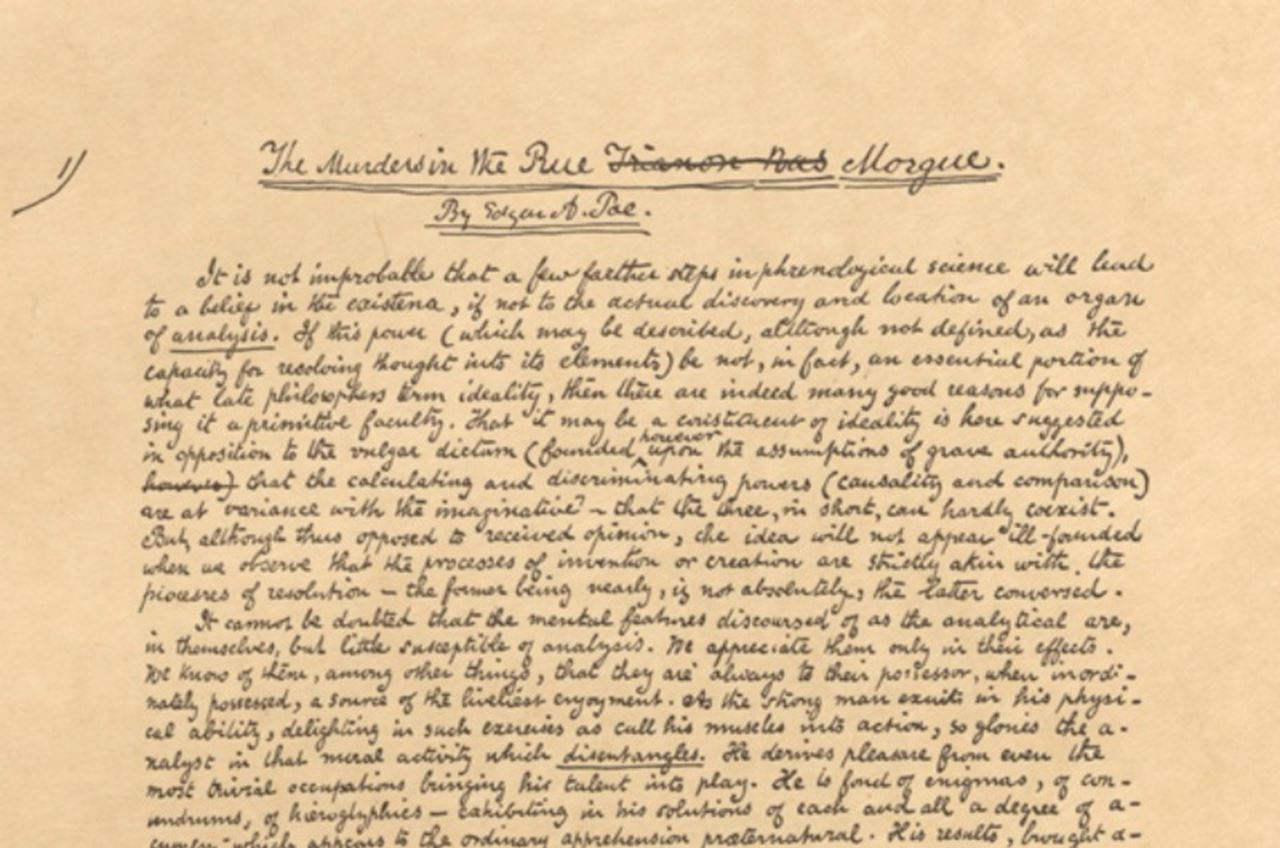 1)
The Murders in the Rue Trianon Bas Morgue.
By Edgar A. Poe.
It is not improbable that a few farther steps in phrenological science will lead
to a belief in the existence, if not to the actual discovery and location of an organ
of analysis. If this power (which may be described, although not defined, as the
capacity for resolving thought into its elements) be not, in fact, an essential portion of
what late philosophers term ideality, then there are indeed many good reasons for suppo-
sing it a primitive faculty. That it may be a constituent of ideality is here suggested
in opposition to the vulgar dictum (founded, however upon the assumptions of grave authority),
however) that the calculating and discriminating powers (causality and comparison)
are at variance with the imaginative — that the three, in short, can hardly coexist.
But, although thus opposed to received opinion, the idea will not appear ill-founded
when we observe that the processes of invention or creation are strictly akin with the
processes of resolution — the former being nearly, if not absolutely, the latter conversed.
It cannot be doubted that the mental features discoursed of as the analytical are,
in themselves, but little susceptible of analysis. We appreciate them only in their effects.
We know of them, among other things, that they are always to their possessor, when inordi-
nately possessed, a source of the liveliest enjoyment. As the strong man exults in his physi-
cal ability, delighting in such exercises as call his muscles into action, so glories the a-
nalyst in that moral activity which disentangles. He derives pleasure from even the
most trivial occupations bringing his talent into play. He is fond of enigmas, of con-
undrums, of hieroglyphics — exhibiting in his solutions of each and all a degree of a-
cumen which appears to the ordinary apprehension præternatural. His results, brought a-